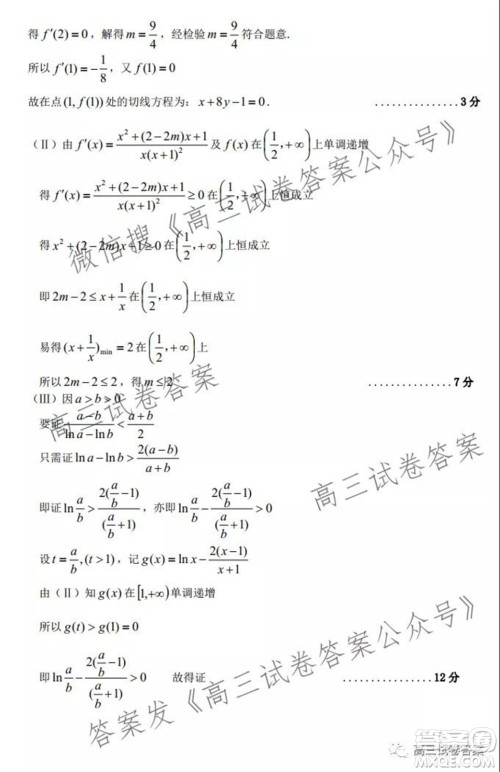 得 f′(2)=0，解得 m=9/4，经检验 m=9/4 符合题意.
所以 f′(1)=-1/8，又 f(1)=0
故在点(1, f(1))处的切线方程为：x+8y-1=0. ...............3分
(Ⅱ) 由 f′(x)=(x²+(2-2m)x+1)/(x(x+1)²) 及 f(x) 在 (1/2,+∞) 上单调递增
得 f′(x)=(x²+(2-2m)x+1)/(x(x+1)²)≥0 在 (1/2,+∞) 上恒成立
得 x²+(2-2m)x+1≥0 在 (1/2,+∞) 上恒成立
即 2m-2≤x+1/x 在 (1/2,+∞) 上恒成立
易得 (x+1/x)min=2 在 (1/2,+∞) 上
所以 2m-2≤2，得 m≤2 ...............7分
(Ⅲ) 因 a>b>0
要证 (a-b)/(ln a-ln b)<(a+b)/2
只需证 ln a-ln b>2(a-b)/(a+b)
即证 ln a/b>2(a/b-1)/(a/b+1)，亦即 ln a/b-2(a/b-1)/(a/b+1)>0
设 t=a/b,(t>1)，记 g(x)=ln x-2(x-1)/(x+1)
由 (Ⅱ) 知 g(x) 在 [1,+∞) 单调递增
所以 g(t)>g(1)=0
即 ln a/b-2(a/b-1)/(a/b+1)>0 故得证 ...............12分
微信搜《高三试卷答案公众号》
高三试卷答案
高三试卷答案
答案发《高三试卷答案公众号》
高三试卷答案
答案圈
MXQE.COM